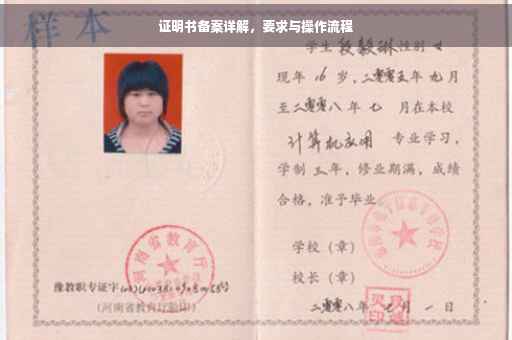 证明书备案详解，要求与操作流程
样本
学生段毅琳性别女
现年16岁，二零零五年九月
至二零零八年七月在本校
计算机应用 专业学习，
学制三年，修业期满，成绩
合格，准予毕业。
学校（章）
校长（章）
二零零八年七月一日
河南省教育厅
豫教职专证字
（河南省教育厅验印）